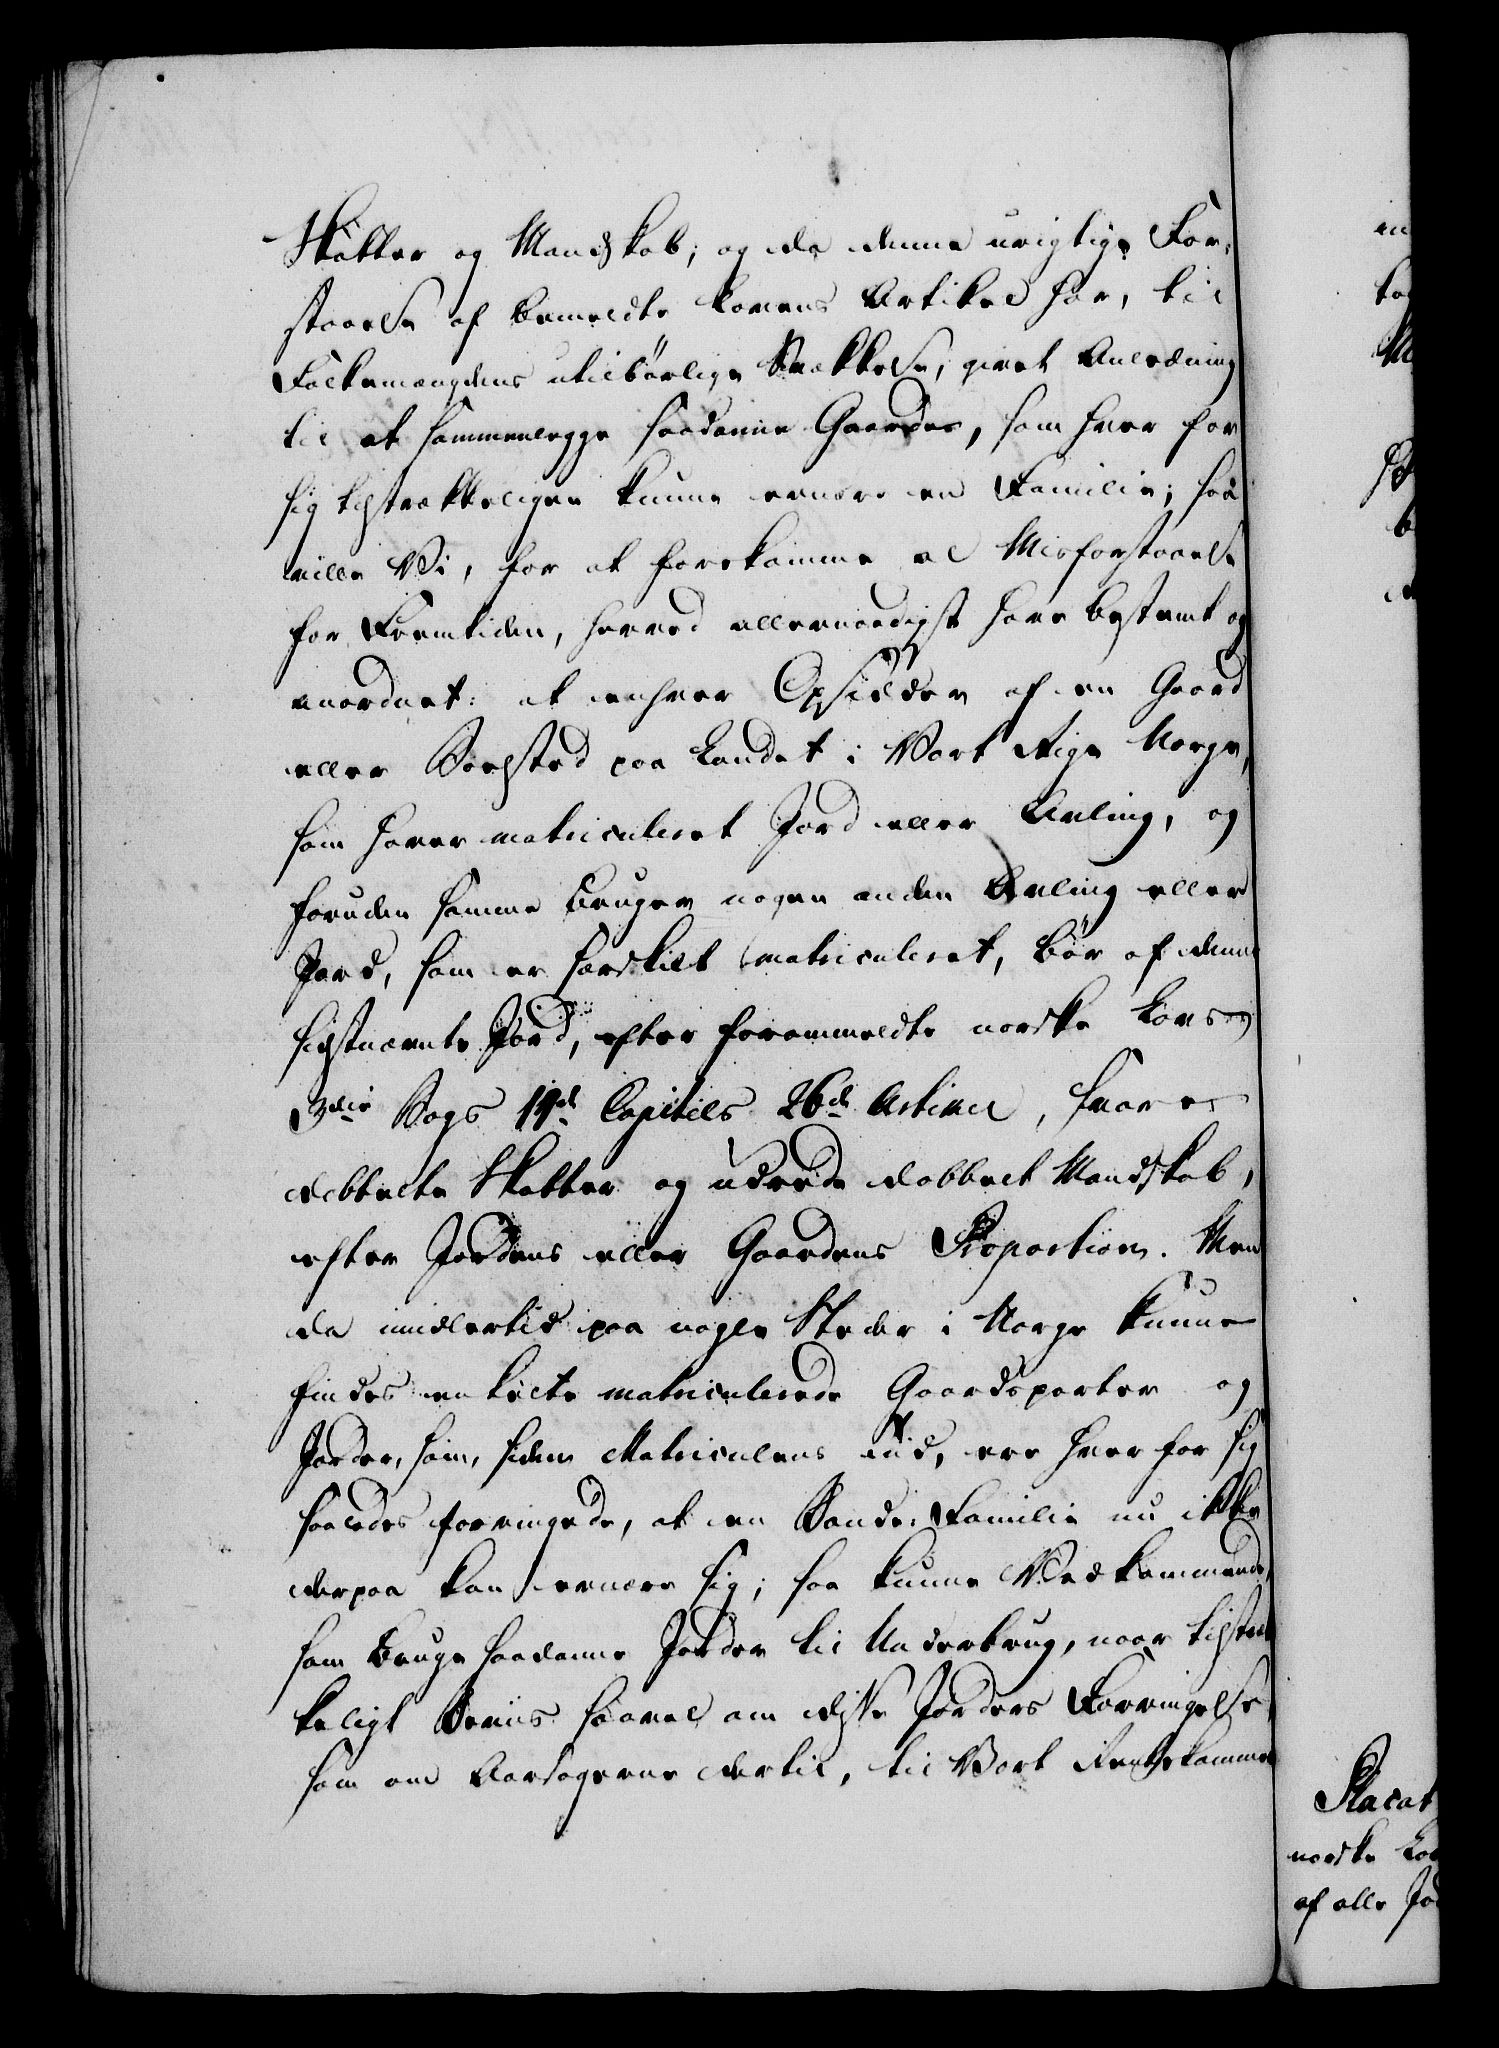 Skatter og Mandskab; og da denne urigtige For-
staaelse af bemeldte Lovens Artikel har, til
Folkemængdens utilbørlige Svækkelse, givet Anledning
til at sammenlegge saadanne Gaarder, som hver for
sig tilstrækkeligen kunne ernære en Familie; saa
ville Vi, for at forekomme al Misforstaaelse
for Fremtiden, herved allernaadigst have bestemt og
anordnet: at enhver Opsidder af en Gaard
eller Boepsted paa Landet i Vort Rige Norge,
som haver matriculeret Jord eller Avling, og
foruden samme bruger nogen anden Avling eller
Jord, som er særskilt matriculeret, bør af denne
sidstnævnte Jord, efter forommeldte norske Lovs
3die Bogs 14d Capitels 26d Artikel, svare
dobbelte Skatter og udrede dobbelt Mandskab,
efter Jordens eller Gaardens Proportion. Men
da imidlertid paa nogle Steder i Norge kunne
findes enkelte matriculerede Gaardsparter og
Jorder, som, siden Matriculens Tiid, ere hver for sig
saaledes forringede, at en Bonde-Familie nu ikke
derpaa kan ernære sig; saa kunne Vedkommende,
som bruge saadanne Jorder til Underbrug, naar tilstræk
keligt Beviis saavel om disse Jorders Forringelse,
som om Aarsagerne dertil, til Vort Rentekammer
Placat
norske Lov
af alle Jor